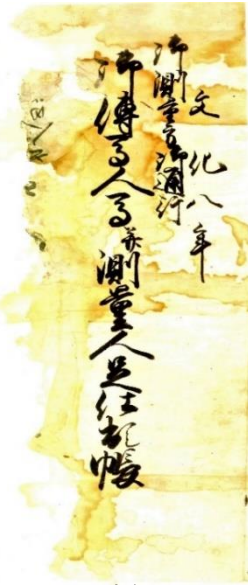 文化八年
御測量方御通行
御傳馬人馬并測量人足仕出帳